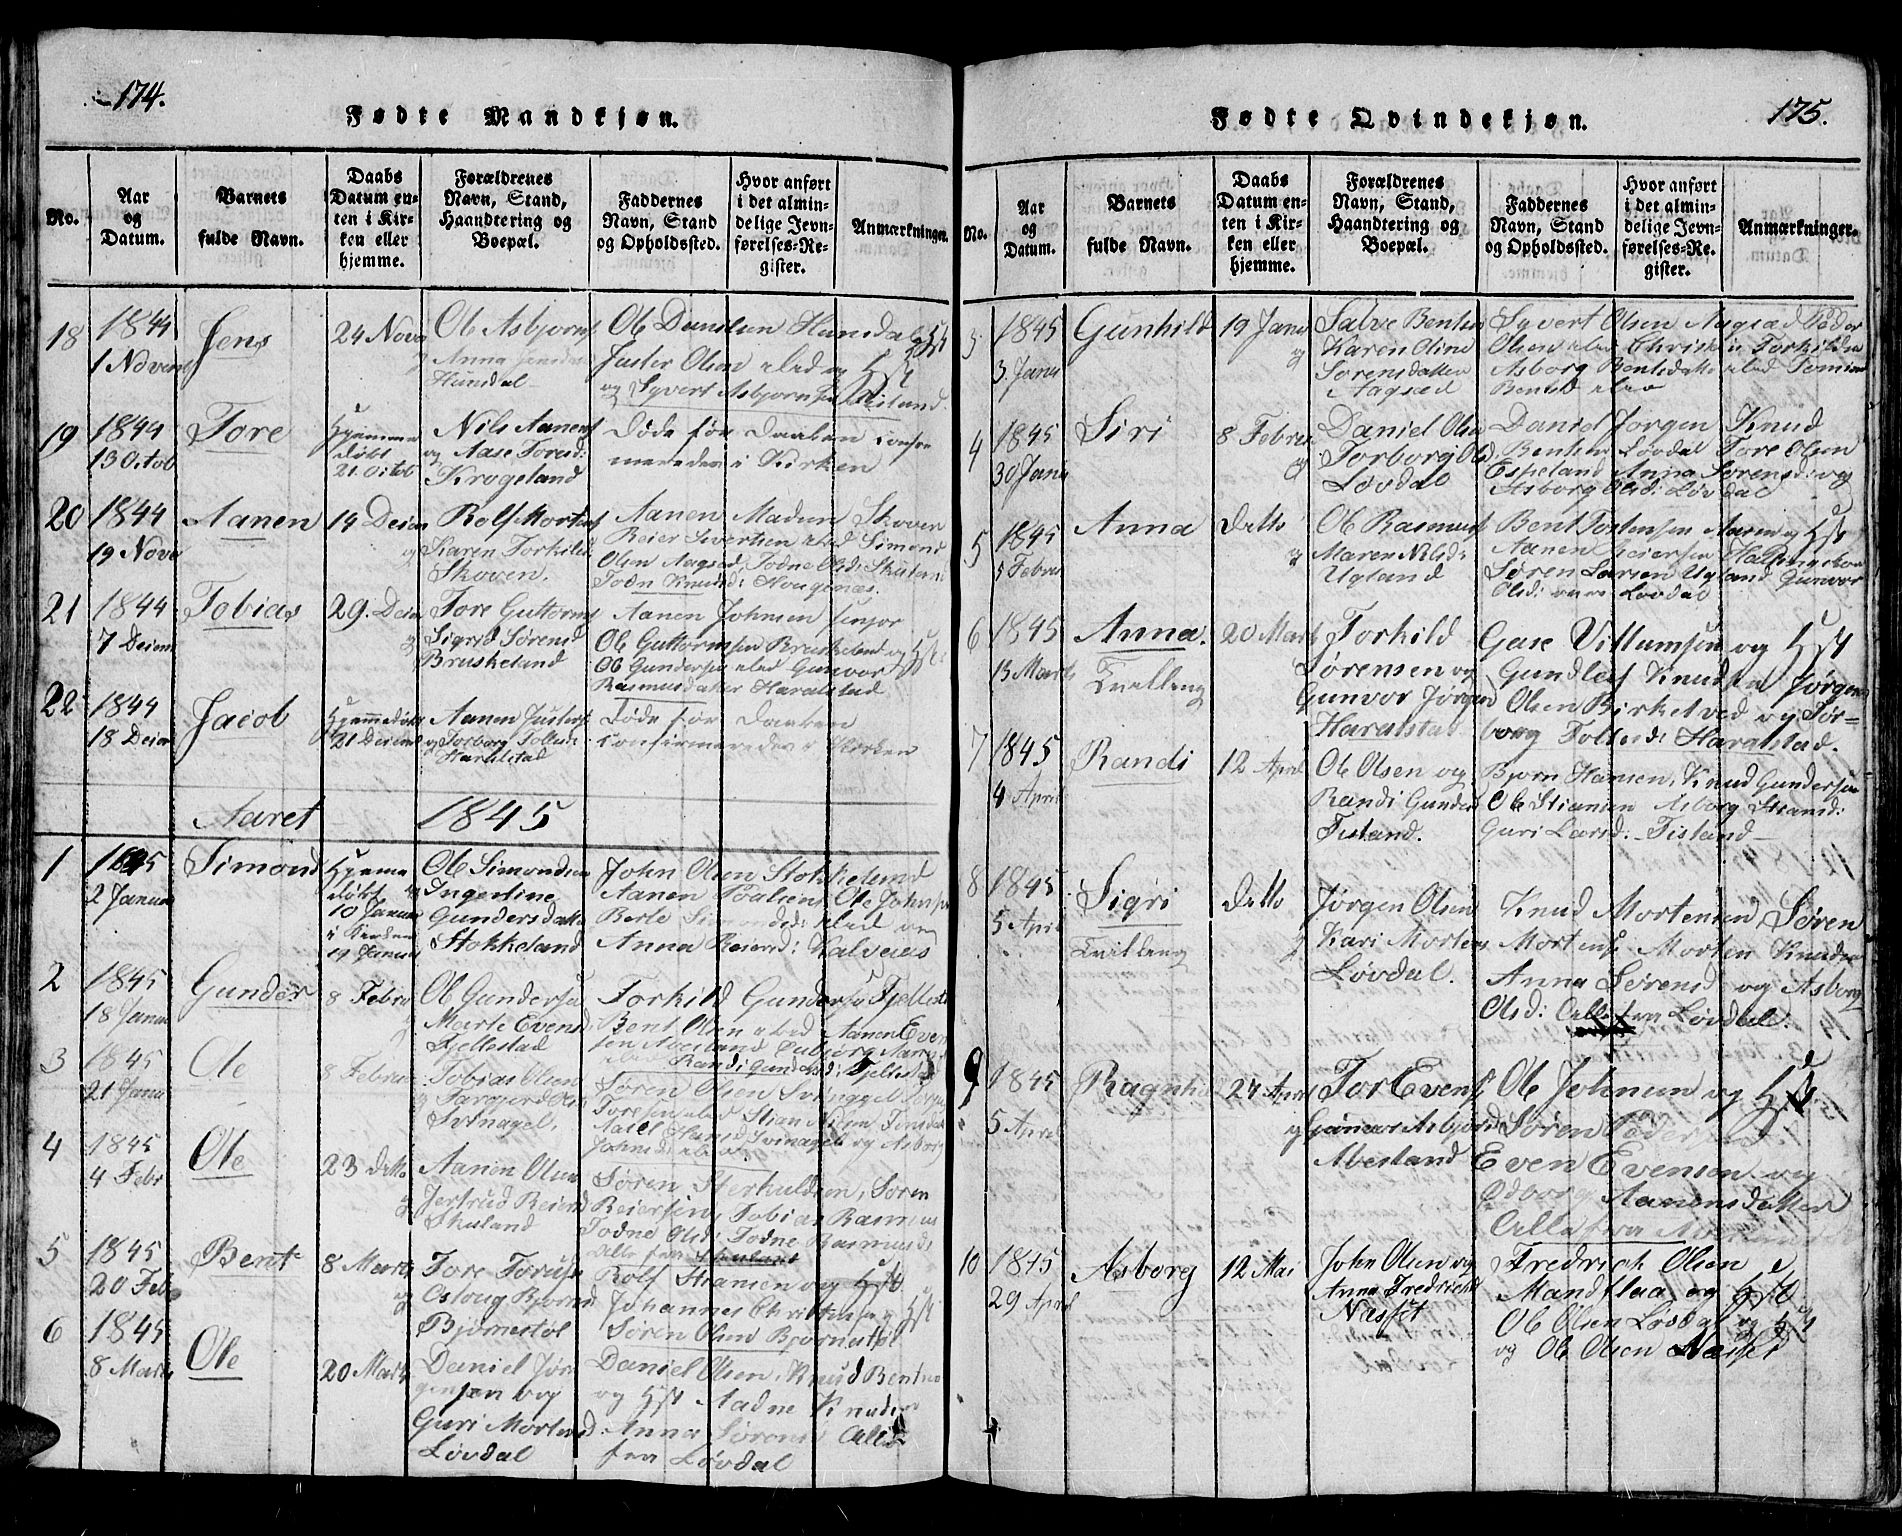 174.
Fødte Mandkjøn.
No.
Aar
og
Datum.
Barnets
fulde Navn.
Daabs
Datum en-
ten i Kir-
ken eller
hjemme.
Forældrenes
Navn, Stand,
Haandtering og
Boepæl.
Faddernes
Navn, Stand
og Opholdssted.
Hvor anført
i det almin-
delige Jevn-
førelses-Re-
gister.
Anmærkninger.
18
1844
1 Novem
Jens
24 Nov
Ole Asbjorns
og Anna
Hundal
Ole Danielsen Hunsdal og Hst
Juster Olsen
og Syvert Asbjornsen
19
1844
13 Octob
Tore
Hjemme
døbt
21 Octob
Nils Aanens
og Aase Toresd:
Krogeland
Døde før Daaben confir
meredes i Kirken
20
1844
19 Nove
Aanen
14 Decem
og
Rolf Mortens
Karen Torkilds
Skoven.
Aanen Madsen Skoven
Reier Sivertsen Simond
Olsen Aagsæd, Todne Olsd: Skuland
Todn Knudsd: Hougenæs.
21
1844
7 Decem
Tobias
29. Decem
og
Tore Guttorms
Sigrid Sørensd
Bruskeland
Aanen Johnsen
Ole Guttormsen Bruskeland og Hst:
Ole Gundersen Gunvor
Rasmusdatter Haralstad
22
1844
18 Decem
Jacob
Hjemmedøbt
21 Decem
Aanen Justers
og Torborg Tollisd:
Haralstad
Døde før Daaben
confirmeredes i Kirken
Aaret 1845
1
1845
2 Januar
Simond
Hjeme
døbt
10 Januar
i Kirken
19 Januar
og
Ole Simondsen
Ingertine
Gundersdatter
Stokkeland
John Olsen Stokkeland
Aanen Poulsen, Ole Johnsen
Berte
Anna Reiersd: Kalveaas
2
1845
18 Januar
Gunder
8 Febru
og
Ole Gundersen
Marte Evensd:
Fjellestad
Torkild Gundersen Fjellestad
Bent Olsen Aanen Even
sen Abesland
Randi Gundersd: Fjellestad
3
1845
21 Janu
Ole
8 Februar
og
Tobias Olsen
Targjerd Ols
Svinagel.
Søren Olsen Svinagel
Svinagel og Asborg
4
1845
4 Febr
Ole
23 detto
og
Aanen Olsen
Jertrud Reiersd
Skuland
Søren Sterkuldsen, Søren
Reiersen, Tobias Rasmus
Todne Olsd: Todne Rasmusd:
Alle fra Skuland
5
1845
20 Feb
Bent
8 Marts
og
Tore Torus
Oslaug Bjorns
Bjørnestøl
Rolf Stiansen og Hst
Johannes Christensen og Hst
Søren Olsen Bjørnestøl
6
1845
8 Marts
Ole
20 Marts
Daniel Jør
gensen og
Guri Mortensd
Løvdal
Daniel Olsen, Knud Bentsen
og Hst Aadne Knudsen
Anna Sørensd Alle
fra Løvdal
175.
Fødte Qvindekjøn.
No.
Aar
og
Datum.
Barnets
fulde Navn.
Daabs
Datum en-
ten i Kir-
ken eller
hjemme.
Forældrenes
Navn, Stand,
Haandtering og
Boepæl.
Faddernes
Navn, Stand
og Opholdssted.
Hvor anført
i det almin-
delige Jevn-
førelses-Re-
gister.
Anmærkninger.
3
1845
3. Janu
Gunhild
19 Janu
og
Salve Bentsen
Karen Oline
Sørensdatter
Aagsæd
Syvert Olsen Aagsæd Peder
Olsen Christen Torkildsen
Asborg Bentsdatter
Bentsd
4
1845
30 Janu
Siri
8 Febru
og
Daniel Olsen
Torborg Olsd
Løvdal
Daniel Jørgen Knud
Bentsen Løvdal Tore Olsen
Espeland Anna Sørensd: og
Asborg Olsd: Løvdal
5
1845
5 Febru
Anna
detto
og
Ole Rasmus
Maren Nilsd:
Ugland
Bent Tostensen Aaren og Hst
Aanen Reiersen
Søren Larsen Ugland Gunvor
Olsd: Løvdal
6
1845
13 Marts
Anna.
Tvilling
20 Marts
Torkild
Sørensen og
Gunvor Jørgensd
Haralstad
Gase Villumsen og Hst
Gundlef Knudsen Jørgen
Olsen Birketved og Tor-
borg Tollisd: Haralstad.
7
1845
4 April
Randi
12 April
Ole Olsen og
Randi Gunders
Tisland.
Bjørn Hansen, Knud Gundersen
Ole Stiansen Asborg Stiansd:
Guri Larsd: Tisland
8
1845
5 April
Sigri
Tvilling
detto
og
Jørgen Olsen
Kari Mortens
Løvdal.
Knud Mortensen Søren
Mortens Morten Knudsen
Anna Sørensd og Asborg
Olsd: Alle fra Løvdal.
9
1845
5 April
Ragnhild
24 April
og
Tor Evens
Gunvor Asbjornsd
Abesland
Ole Johnsen og Hst
Søren Pedersen
Even Evensen og
Aanensdatter
Alle fra Abesland
10
1845
29 April
Asborg
12 Mai
John Olsen og
Anna Fredrichs
Næsset
Fredrich Olsen
Mandflaa og Hst
Ole Olsen Løvdal og Hst
og Ole Olsen Næsset